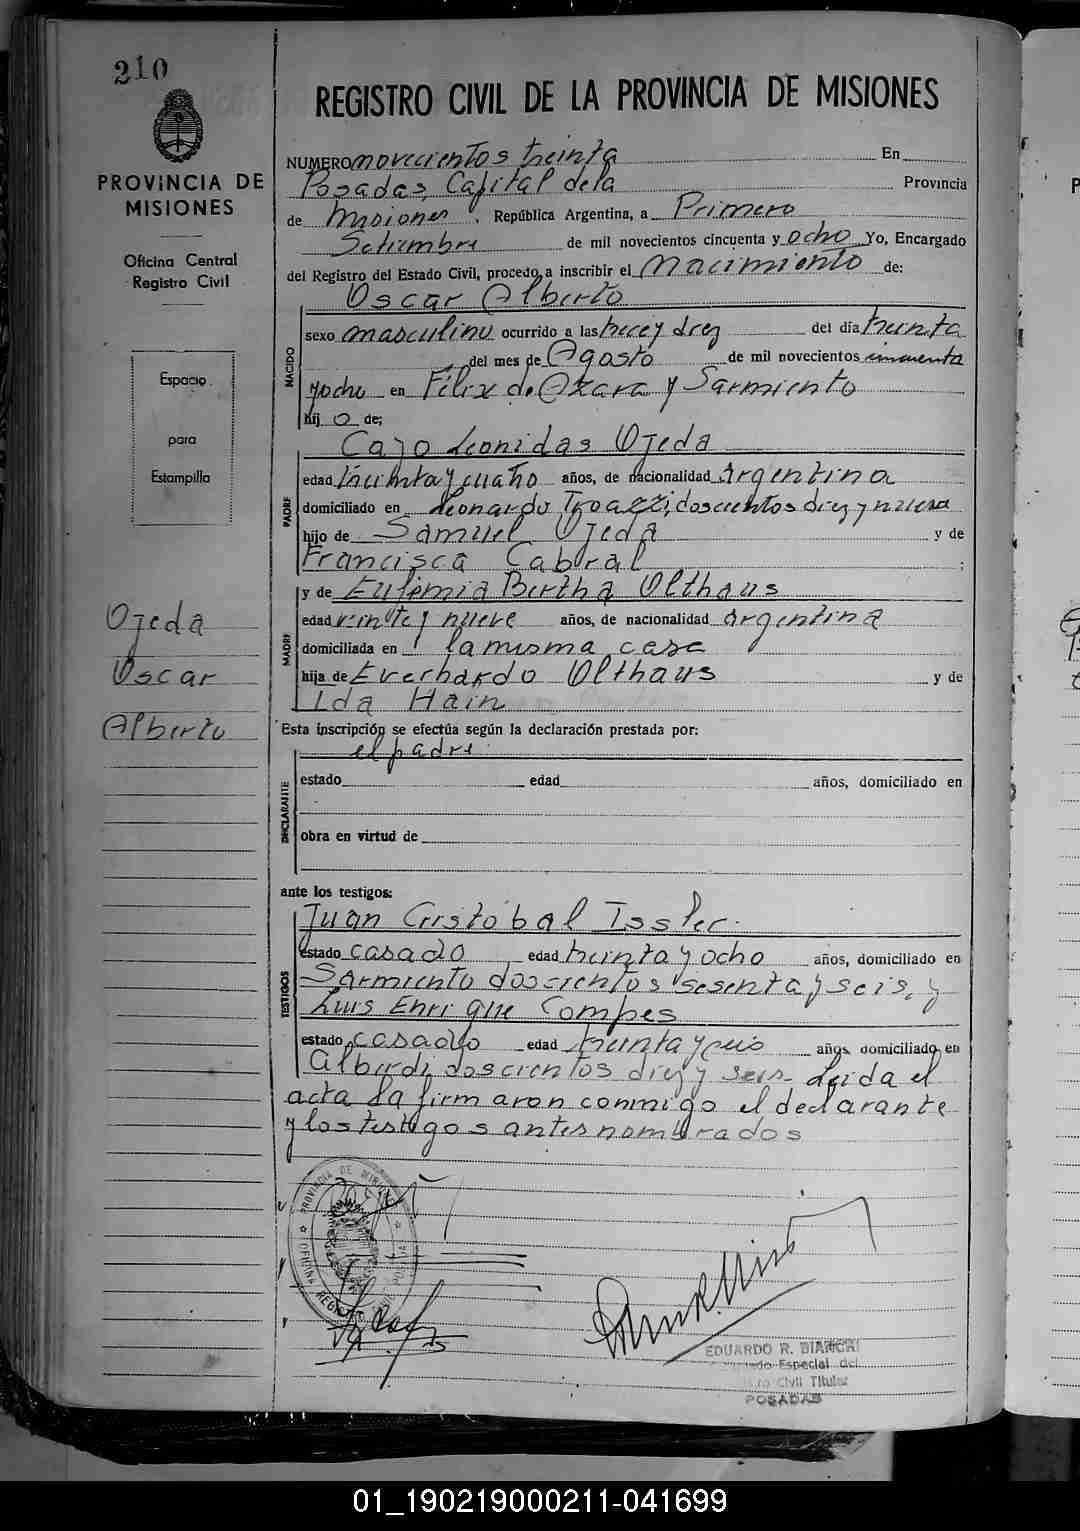 210
REGISTRO CIVIL DE LA PROVINCIA DE MISIONES
PROVINCIA DE
MISIONES
Oficina Central
Registro Civil
Espacio
para
Estampilla
Ojeda
Oscar
Alberto
NUMERO novecientos treinta En
Posadas, Capital de la Provincia
de Misiones, República Argentina, a Primero
Setiembre de mil novecientos cincuenta y ocho Yo, Encargado
del Registro del Estado Civil, procedo a inscribir el Nacimiento de:
Oscar Alberto
NACIDO
sexo masculino ocurrido a las trece y diez del día treinta
del mes de Agosto de mil novecientos cincuenta
y ocho en Félix de Azara y Sarmiento
hijo de;
PADRE
Cayo Leonidas Ojeda
edad treinta y cuatro años, de nacionalidad argentina
domiciliado en Leonardo doscientos diez y nueve
hijo de Samuel Ojeda y de
Francisca Cabral ;
MADRE
y de Eufemia Bertha Olthaus
edad veinte y nueve años, de nacionalidad argentina
domiciliada en la misma casa
hija de Everhardo Olthaus y de
Ida Hain
Esta inscripción se efectúa según la declaración prestada por:
el padre
DECLARANTE
estado edad años, domiciliado en
obra en virtud de
ante los testigos:
TESTIGOS
Juan Cristóbal Issler
estado casado edad treinta y ocho años, domiciliado en
Sarmiento doscientos sesenta y seis, y
Luis Enrique Compes
estado casado edad treinta y seis años, domiciliado en
Alberdi doscientos diez y seis. Leida el
acta la firmaron conmigo el declarante
y los testigos antes nombrados
PROVINCIA DE MISIONES
OFICINA REGISTRO CIVIL POSADAS
EDUARDO R. BIANCHI
Especial del
Civil Titular
POSADAS
01_190219000211-041699